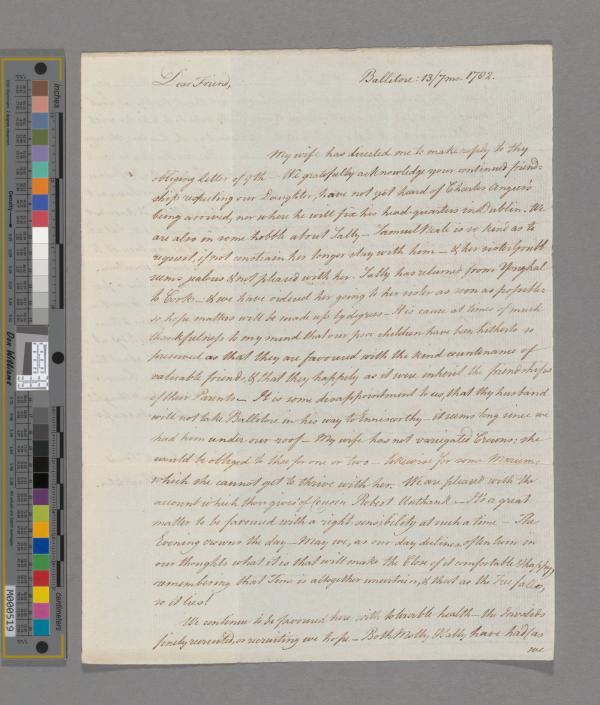 Dear Friend, Ballitore: 13/7mo. 1782.
My wife has directed me to make reply to thy
obliging letter of 9th - We gratefully acknowledge your continued friend-
ship respecting our Daughter, have not yet heard of Charles Angers
being arrived, nor where he will fix his head-quarters in Dublin. We
are also in some hobble about Sally - Samuel Neale is so kind as to
request, if not constrain her longer stay with him - & her sister Grubb
seems jealous & not pleased with her. Sally has returned from Youghal
to Cork - & we have ordered her going to her sister as soon as possible
so hope matters will be made up by degrees - It is cause at times of much
thankfulness to my mind that our poor children have been hitherto so
preserved as that they are favoured with the kind countenance of
valuable friends, & that they happily as it were inherit the friendships
of their Parents - It is some disappointment to us, that thy husband
will not take Ballitore in his way to Enniscorthy - it seems long since we
had him under our roof - My wife has not variegated Crowns; she
would be obliged to thee for one or two - likewise for some
which she cannot get to thrive with her. We are pleased with the
account which thou gives of Cousin Robert Unthank - It's a great
matter to be favoured with a right sensibility at such a time - The
Evening crowns the day - May we, as our day declines, often turn in
our thoughts what it is that will make the Close of it comfortable & happy,
remembering that Time is altogether uncertain, & that as the Tree falls,
so it lies!
We continue to be favoured here with tolerable health - the Invalids
finely recruited, or recruiting we hope - Both Molly & have had (as
we
inches
centimeters
Don Williams
M000519